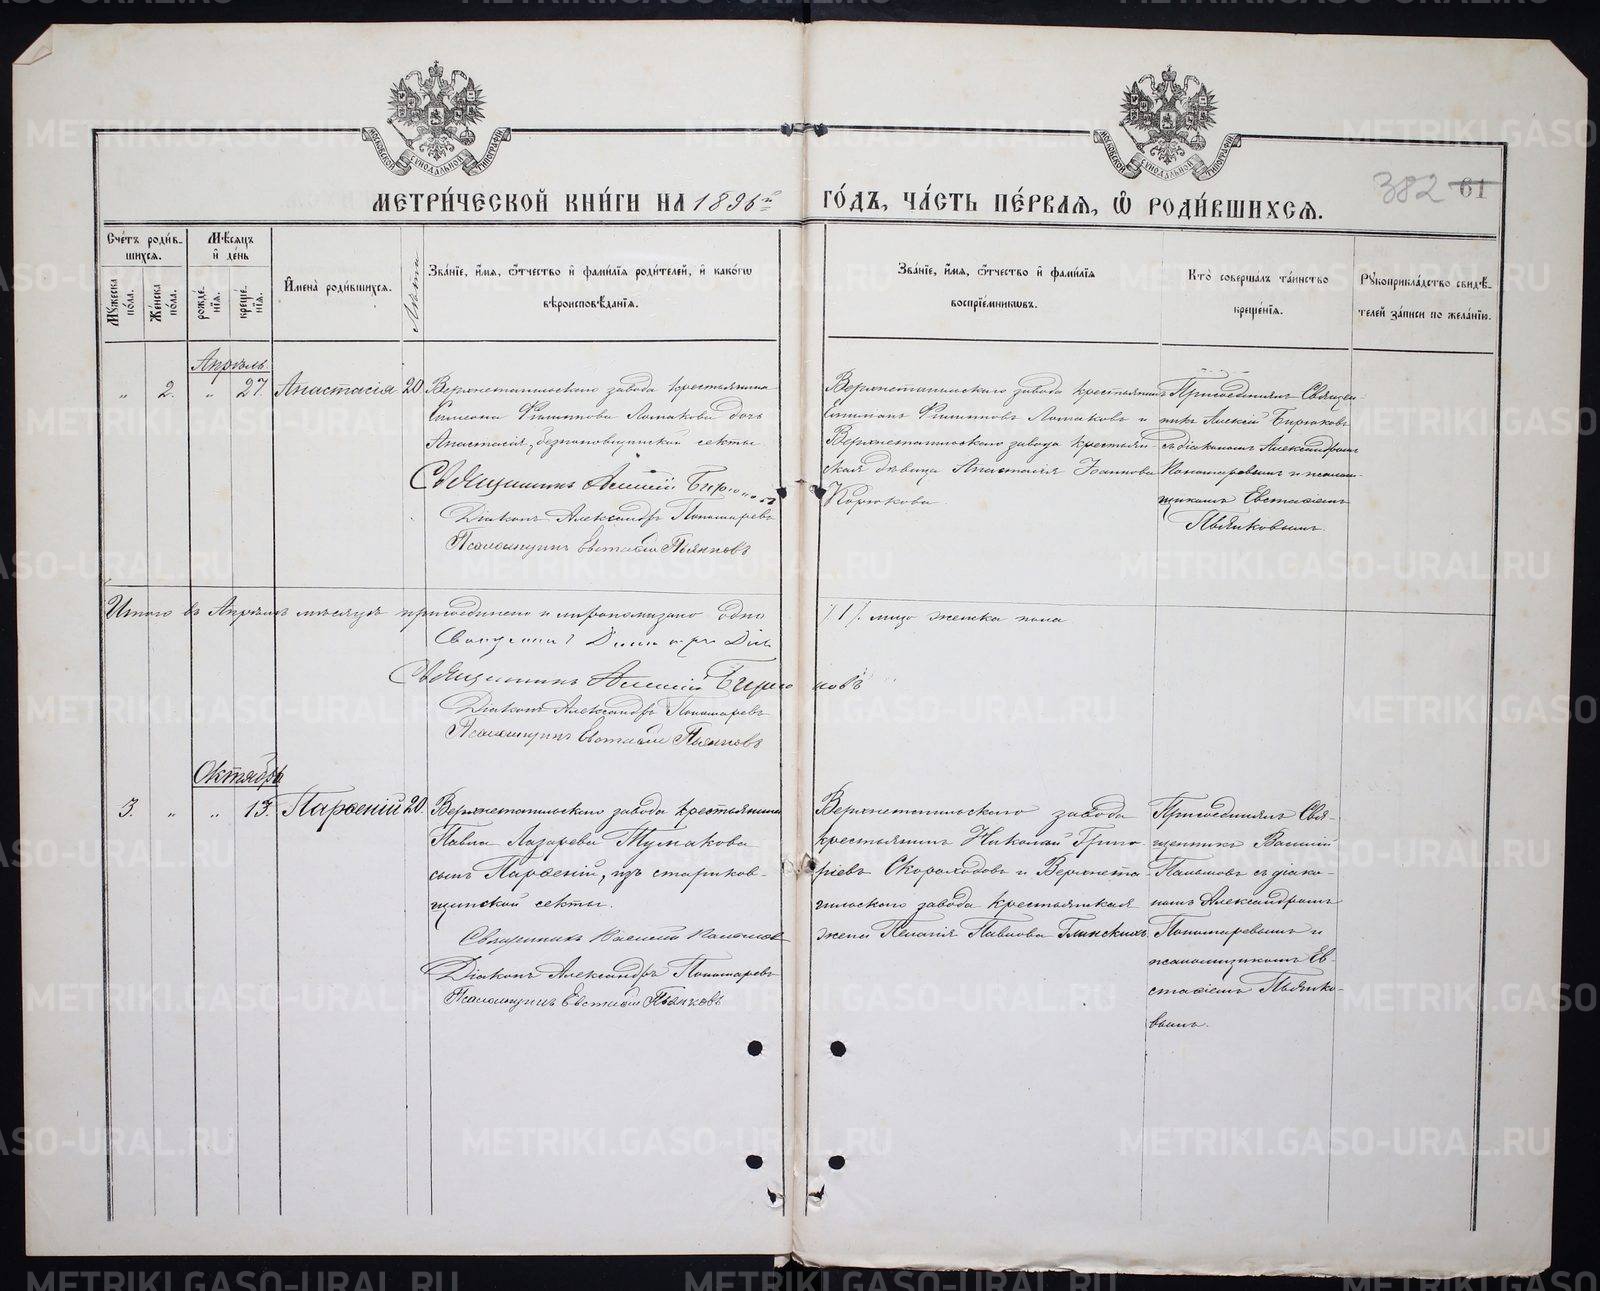 МЕТРИ́ЧЕСКОЙ КНИ́ГИ НА 1896й ГО́ДЪ, ЧА́СТЬ ПЕ́РВАЯ, Ѡ РОДИ́ВШИХСЯ.
382 61
Сче́тъ роди́вшихся.
Мꙋжеска по́ла.
Же́нска по́ла.
Мѣ́сяцъ и де́нь
рожде́нїя.
креще́нїя.
Имена̀ роди́вшихся.
Лѣта
Зва́нїе, и́мя, ѻ́тчество и фами́лїя роди́телей, и како́гѡ
вѣроисповѣ́данїя.
Зва́нїе, и́мя, ѻ́тчество и фами́лїя
воспрїе́мникѡвъ.
Кто̀ соверша́лъ та́инство
креще́нїя.
Рꙋкоприкла́дство свидѣ́-
телей за́писи по жела́нїю.
Апрѣль.
„ 2. „ 27. Анастасія 20
Верхнетагильскаго завода крестьянина
Симеона Филиппова Ломакова дочь
Анастасія, безпоповщинской секты
Священникъ Алексій Бирюковъ
Діаконъ Александръ Пономаревъ
Псаломщикъ Евстафій Пьянковъ
Верхнетагильскаго завода крестьянинъ
Филипповъ Ломаковъ и
Верхнетагильскаго завода крестьян-
ская дѣвица Анастасія Іоаннова
Корюкова
Присоединялъ Священ-
никъ Алексій Бирюковъ
съ діакономъ Александромъ
Пономаревымъ и псалом-
щикомъ Евстафіемъ
Пьянковымъ.
Итого въ Апрѣлѣ мѣсяцѣ присоединено и миропомазано одно /1/ лицо женска пола
Священникъ Алексій Бирюковъ
Діаконъ Александръ Пономаревъ
Псаломщикъ Евстафій Пьянковъ
Октябрь
3. „ „ 13. Парѳеній 20.
Верхнетагильскаго завода крестьянина
Павла Лазарева Тумакова
сынъ Парѳеній, изъ стариков-
щинской секты.
Священникъ Василій
Діаконъ Александръ Пономаревъ
Псаломщикъ Евстафій Пьянковъ
Верхнетагильскаго завода
крестьянинъ Николай Григо-
ріевъ Скороходовъ и Верхнета-
гильскаго завода крестьянская
жена Пелагія Павлова Глинскихъ
Присоединялъ Свя-
щенникъ Василій
съ діако-
номъ Александромъ
Пономаревымъ и
псаломщикомъ Ев-
стафіемъ Пьянко-
вымъ.
METRIKI.GASO-URAL.RU